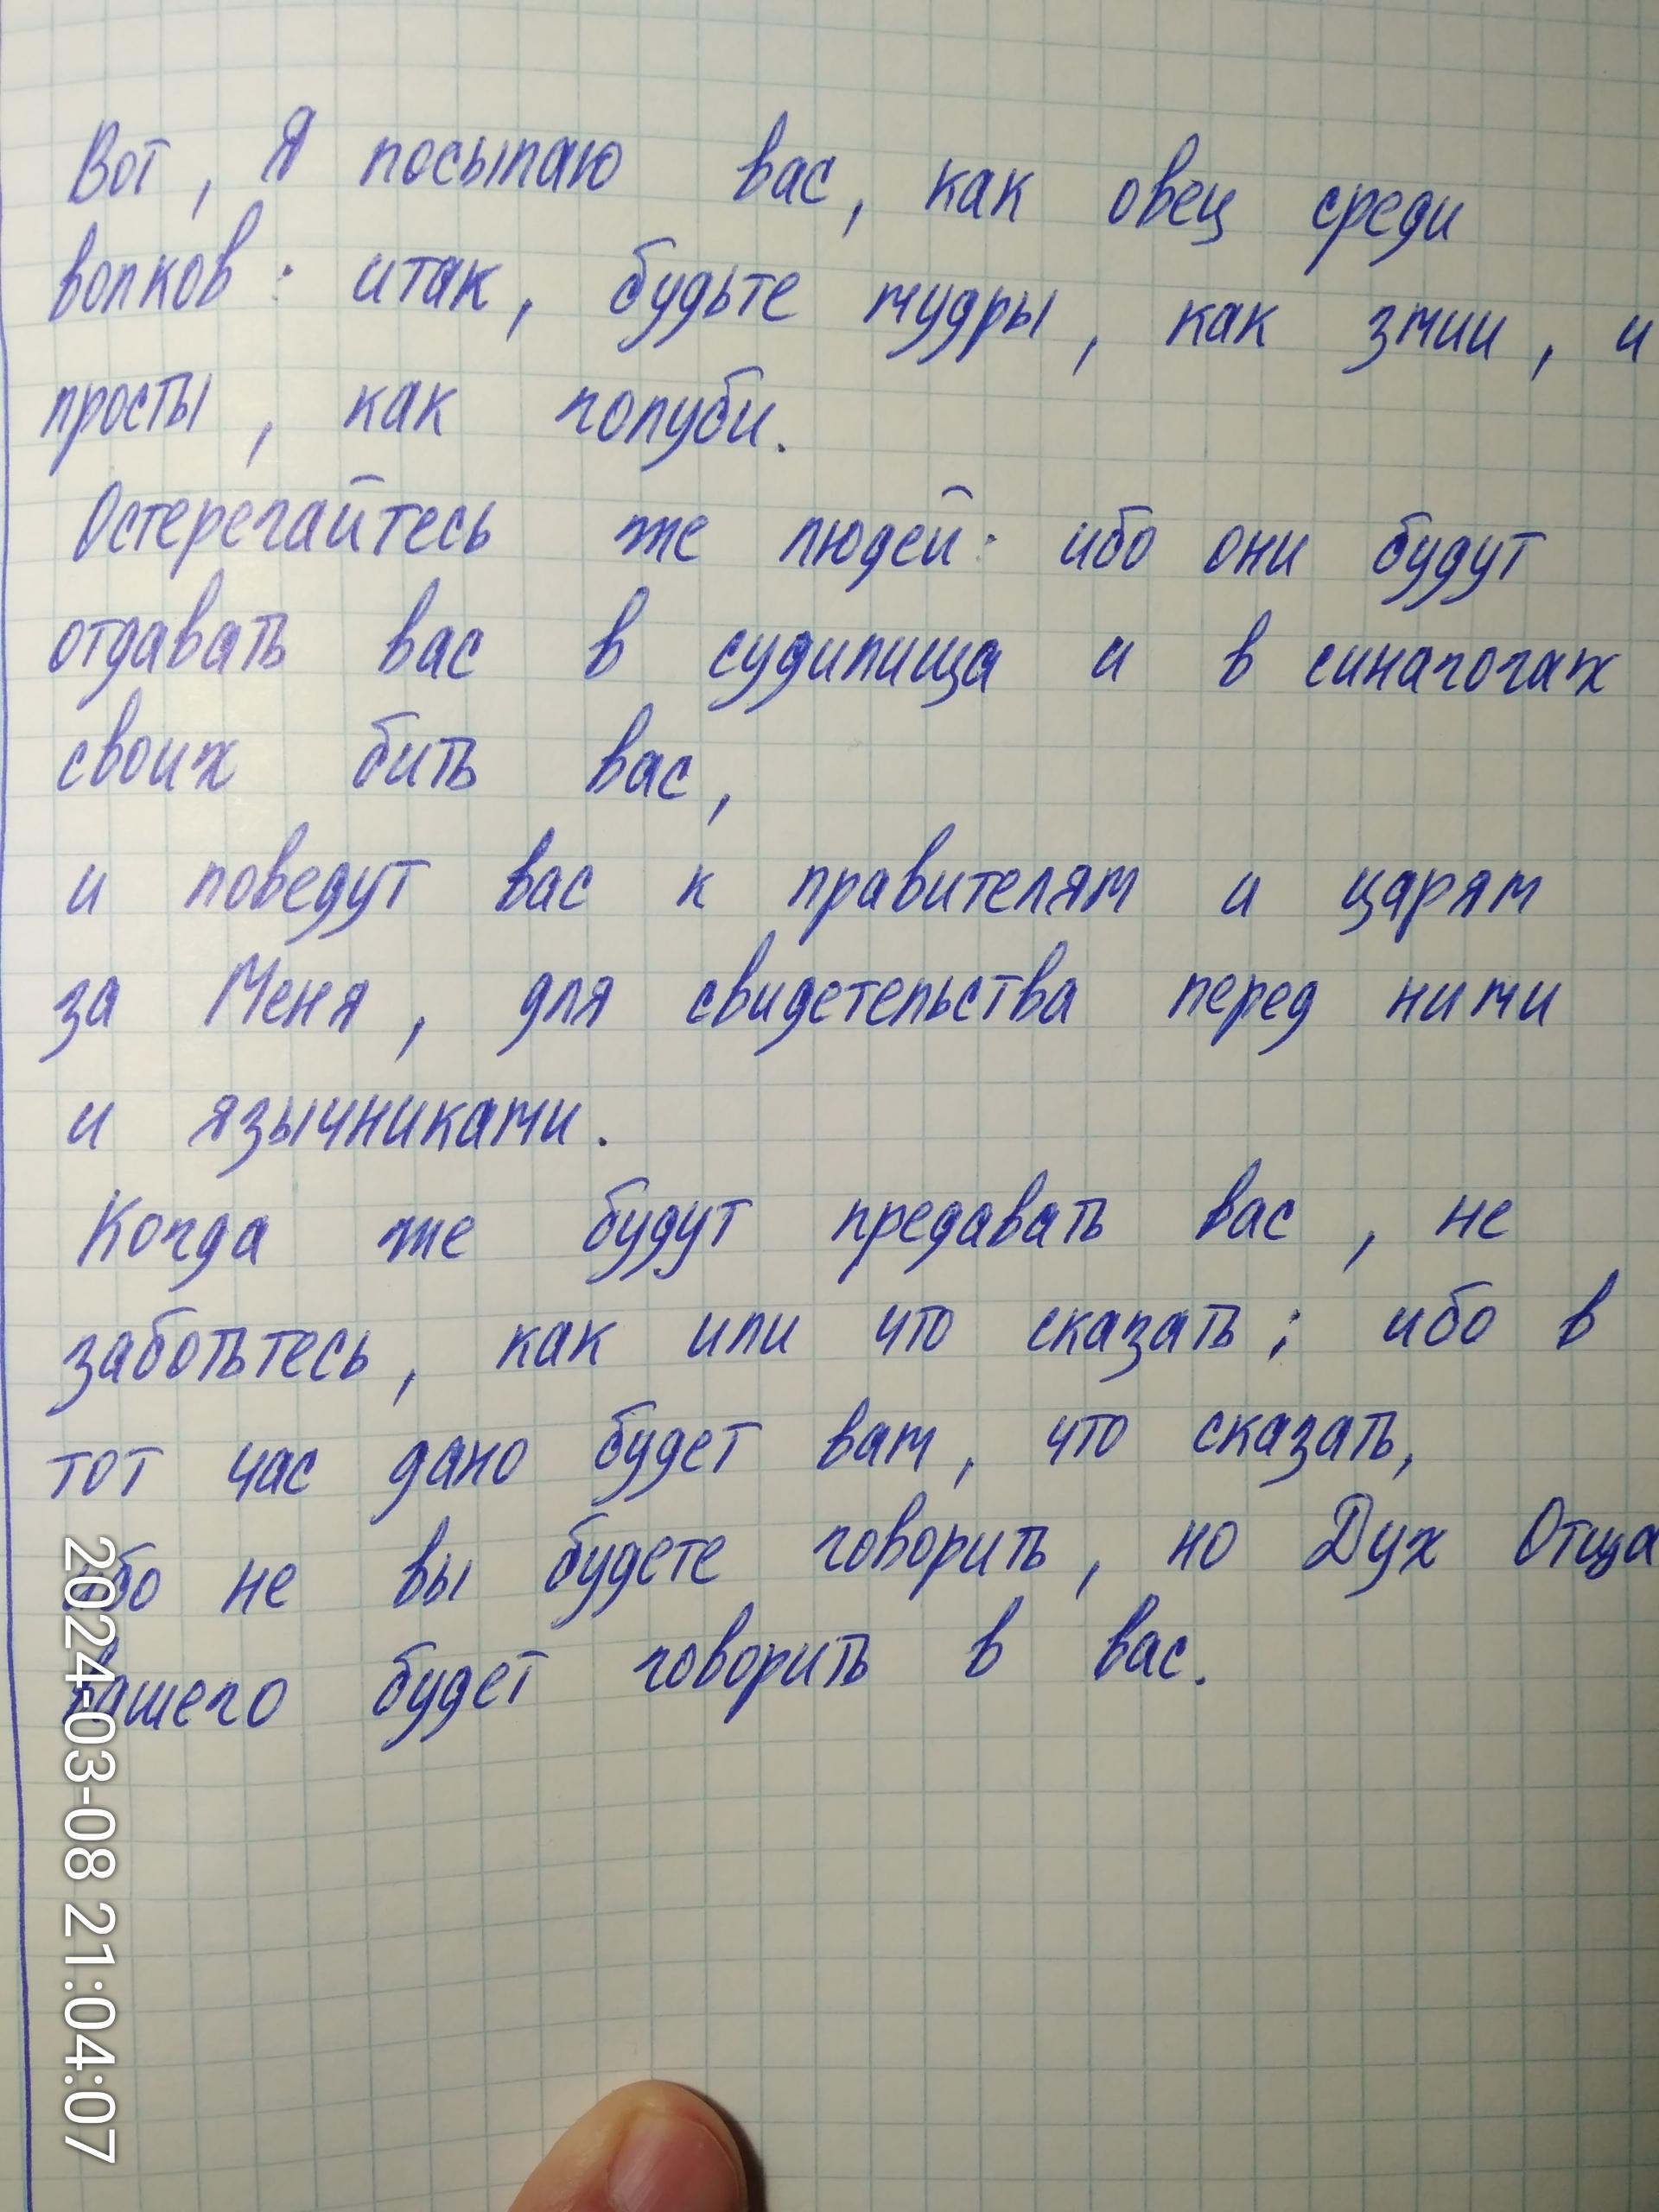 Вот, Я посылаю вас, как овец среди
волков: итак, будьте мудры, как змии, и
просты, как голуби.
Остерегайтесь же людей: ибо они будут
отдавать вас в судилища и в синагогах
своих бить вас,
и поведут вас к правителям и царям
за Меня, для свидетельства перед ними
и язычниками.
Когда же будут предавать вас, не
заботьтесь, как или что сказать; ибо в
тот час дано будет вам, что сказать,
ибо не вы будете говорить, но Дух Отца
вашего будет говорить в вас.
2024-03-08 21:04:07